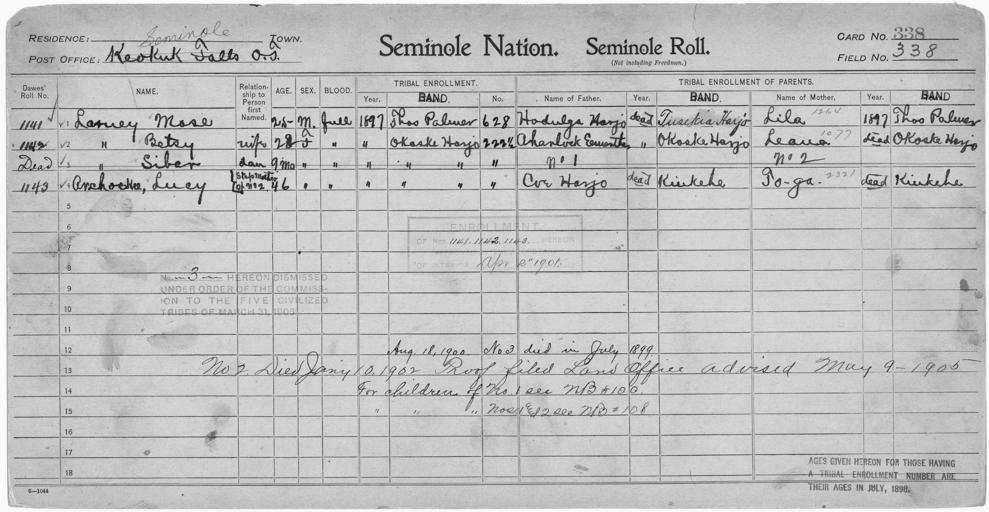 RESIDENCE: Seminole TOWN.
POST OFFICE: Keokuk Falls O.T.
Seminole Nation. Seminole Roll.
(Not including Freedmen.)
CARD NO. 338
FIELD NO. 338
Dawes' Roll No. NAME. Relationship to Person first Named. AGE. SEX. BLOOD. TRIBAL ENROLLMENT. TRIBAL ENROLLMENT OF PARENTS.
Year. BAND. No. Name of Father. Year. BAND. Name of Mother. Year. BAND.
1141 1 Larney Mose 25 M. full 1897 Thos Palmer 628 Hodulga Harjo dead Tusekia Harjo Lila 1264 1897 Thos Palmer
1142 2 " Betsy wife 28 F " " Okoske Harjo 222 Charlock " Okoske Harjo Leana 1077 dead Okoske Harjo
Dead 3 " Siber dau 9 mo " " " " " No 1 No 2
1143 4 Lucy Stepmother of No 2. 46 " " " " " Coe Harjo dead Kinkehe To-ga. 2321 dead Kinkehe
5
6
ENROLLMENT
OF NOS 1141. 1142. 1143. HEREON
7
Apr 2" 1901.
8
No 3 HEREON DISMISSED
9
UNDER ORDER OF THE COMMISS-
ION TO THE FIVE CIVILIZED
10
TRIBES OF MARCH 31, 1905
11
12 Aug. 18, 1900. No 3 died in July 1899.
13 No 2. Died Jany 10, 1902 Proof filed Land Office advised May 9-1905
14 For children of No. 1 see NB # 109.
15 " " " Nos 1 & 2 see NB # 108
16
17
18
AGES GIVEN HEREON FOR THOSE HAVING
A TRIBAL ENROLLMENT NUMBER ARE
THEIR AGES IN JULY, 1898.
6-1044